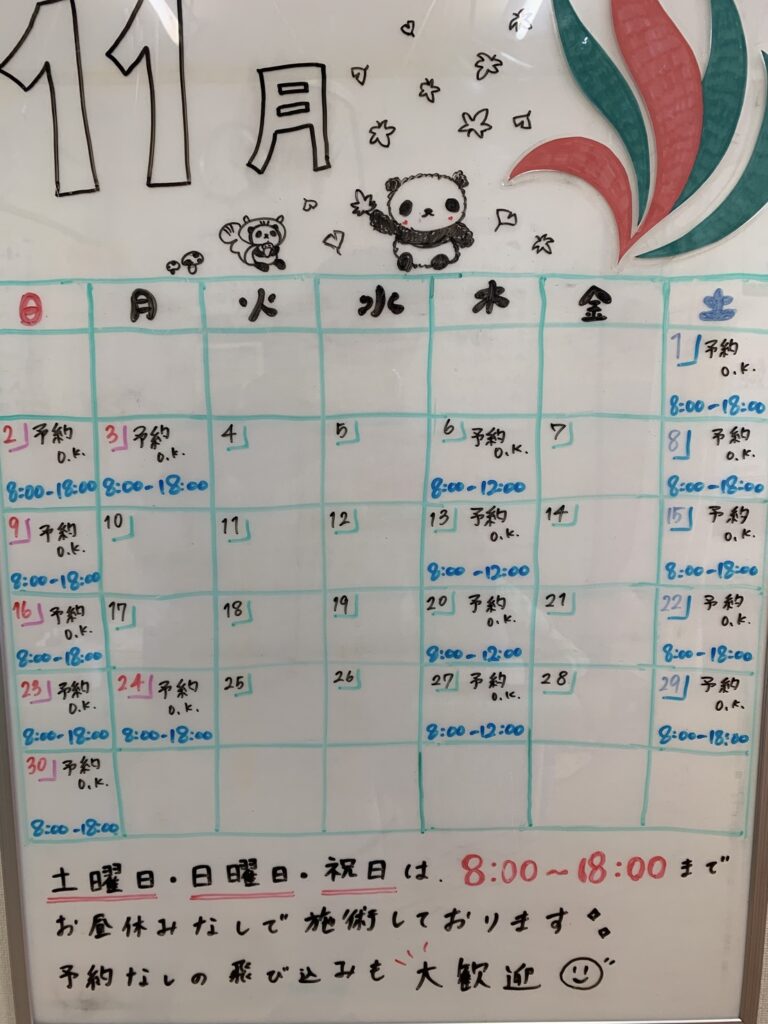 11月
日 月 火 水 木 金 土
1 予約 O.K.
8:00-18:00
2 予約 O.K. 3 予約 O.K. 4 5 6 予約 O.K. 7 8 予約 O.K.
8:00-18:00 8:00-18:00 8:00-12:00 8:00-18:00
9 予約 O.K. 10 11 12 13 予約 O.K. 14 15 予約 O.K.
8:00-18:00 8:00-12:00 8:00-18:00
16 予約 O.K. 17 18 19 20 予約 O.K. 21 22 予約 O.K.
8:00-18:00 8:00-12:00 8:00-18:00
23 予約 O.K. 24 予約 O.K. 25 26 27 予約 O.K. 28 29 予約 O.K.
8:00-18:00 8:00-18:00 8:00-12:00 8:00-18:00
30 予約 O.K.
8:00-18:00
土曜日・日曜日・祝日は、8:00~18:00まで
お昼休みなしで施術しております
予約なしの飛び込みも大歓迎